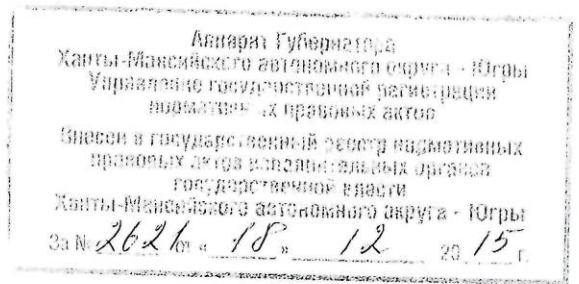 Аппарат Губернатора
Ханты-Мансийского автономного округа - Югры
Управление государственной регистрации
нормативных правовых актов
Внесен в государственный реестр нормативных
правовых актов исполнительных органов
государственной власти
Ханты-Мансийского автономного округа - Югры
За № 2621 от « 18 » 12 20 15 г.